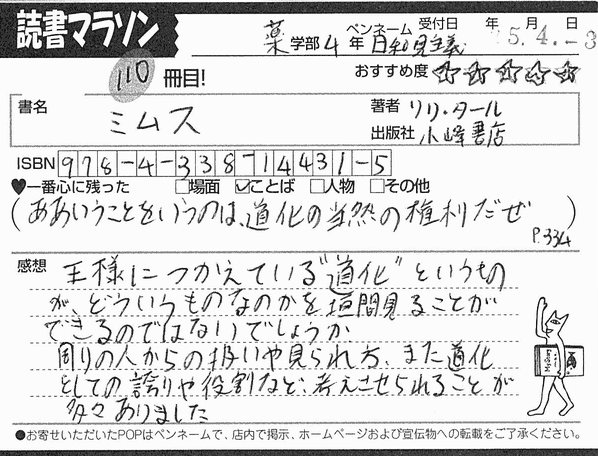 読書マラソン
薬学部4年 ペンネーム 日和見主義 受付日 年 月 日 5.4.-3
110冊目!
おすすめ度 ☆☆☆☆☆
書名 ミムス
著者 リリ・タール
出版社 小峰書店
ISBN 978-4-338-14431-5
♥一番心に残った □場面 ☑ことば □人物 □その他
(ああいうことをいうのは、道化の当然の権利だぜ)
P.334
感想 王様につかえている"道化"というもの
が、どういうものなのかを垣間見ることが
できるのではないでしょうか
周りの人からの扱いや見られ方、また道化
としての誇りや役割など、考えさせられることが
多々ありました
●お寄せいただいたPOPはペンネームで、店内で掲示、ホームページおよび宣伝物への転載をご了承ください。